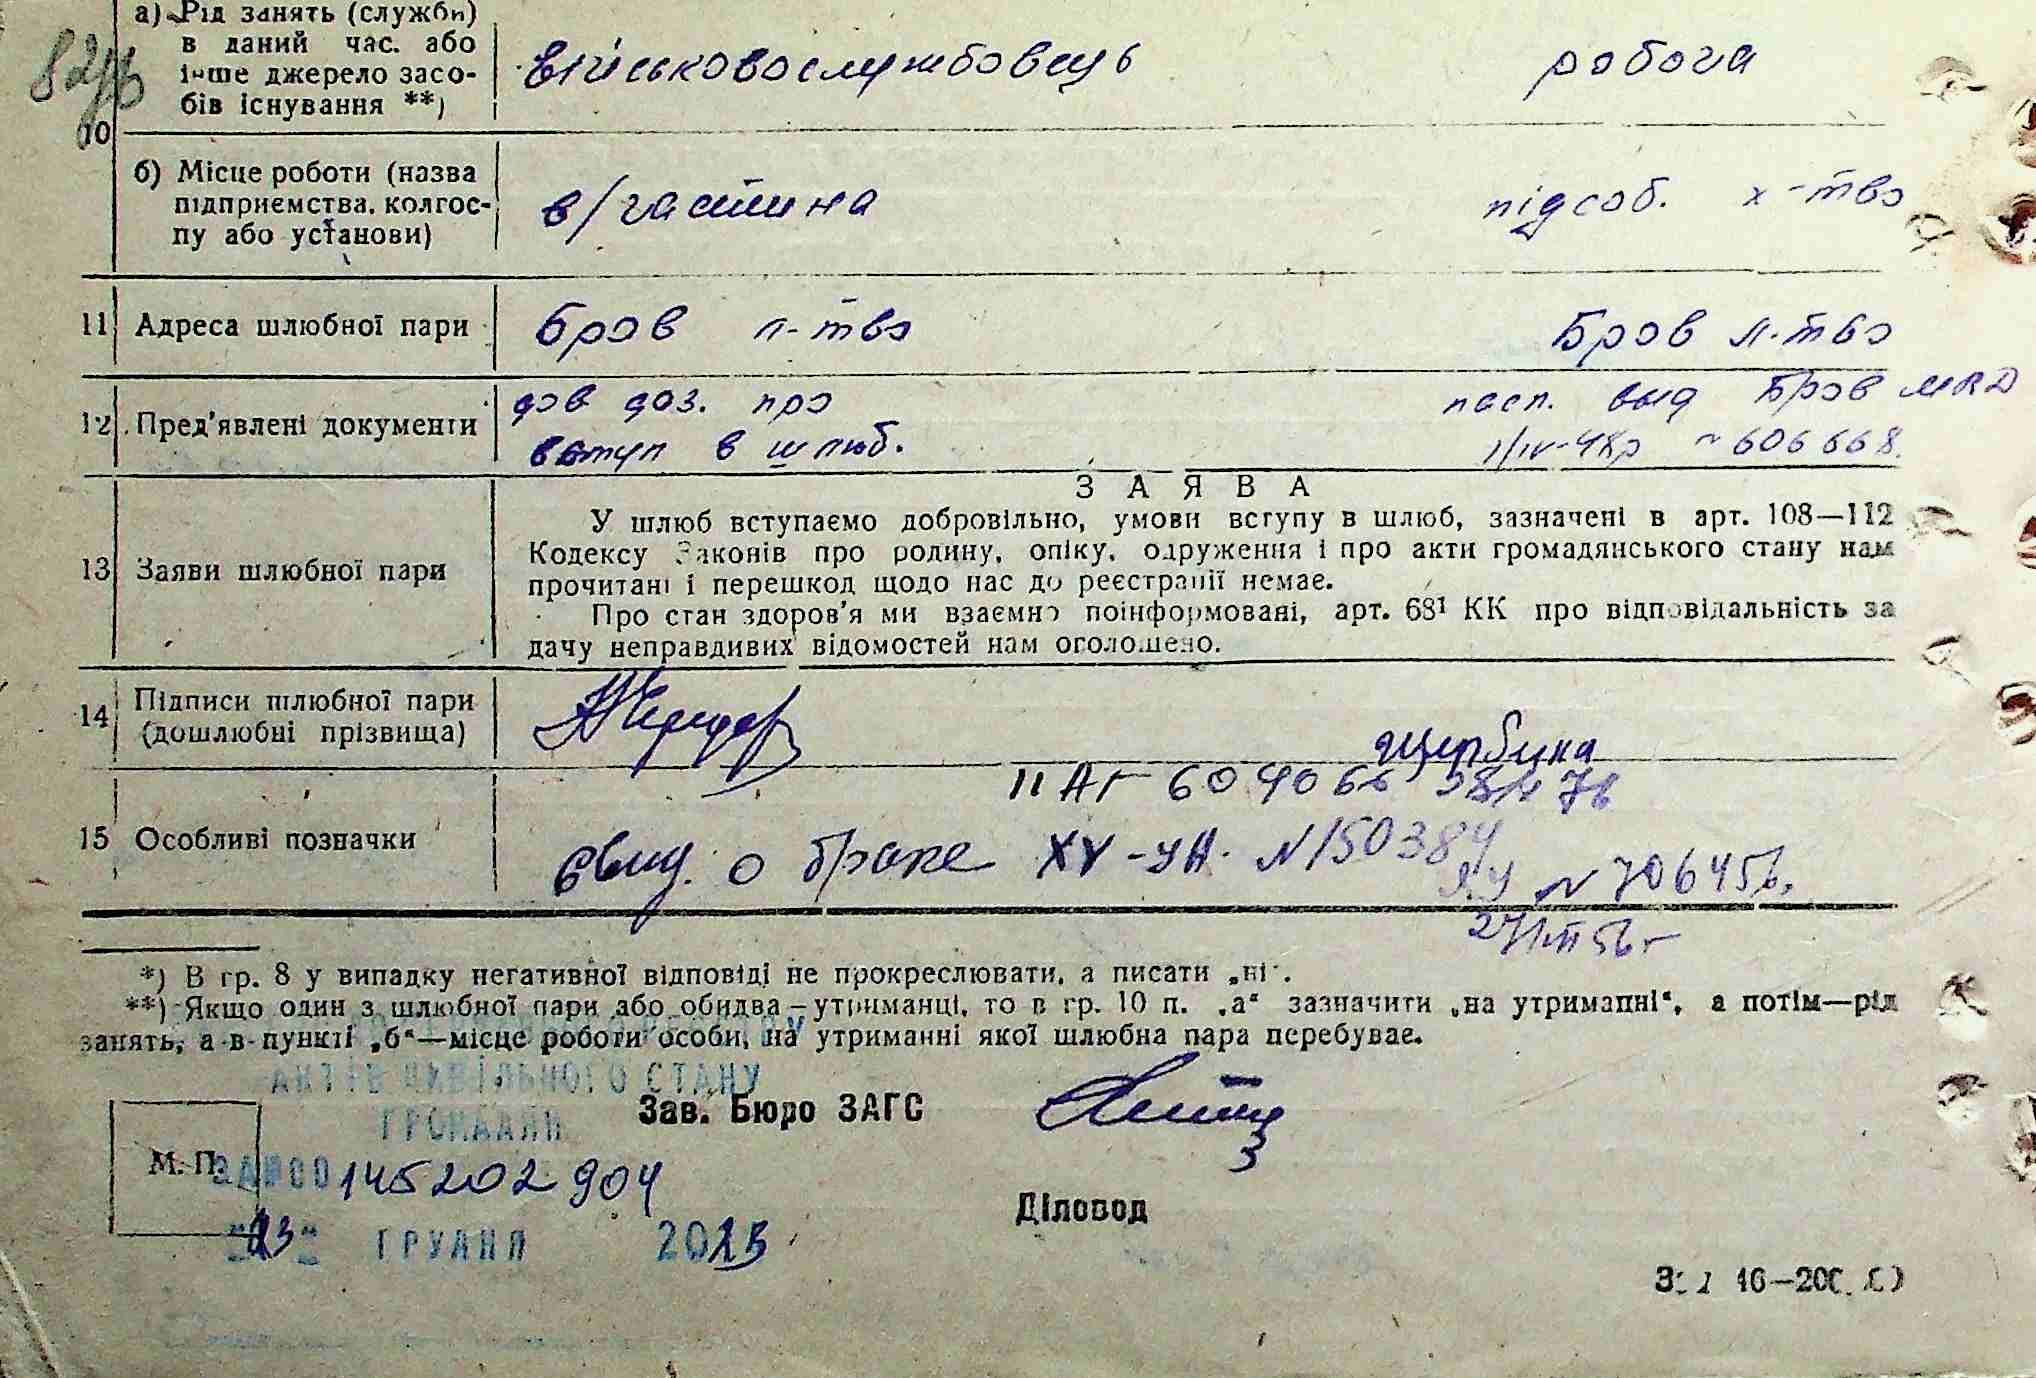 82/ь
а) Рід занять (служби) в даний час. або інше джерело засобів існування **)
військовослужбовець робоча
10
б) Місце роботи (назва підприємства, колгоспу або установи)
в/частина підсоб. х-тво
11 Адреса шлюбної пари
Бров л-тво Бров л-тво
12. Пред'явлені документи
дов доз. про
вступ в шлюб.
пасп. выд Бров МВД
1/IV-48р № 606668.
ЗАЯВА
13 Заяви шлюбної пари
У шлюб вступаємо добровільно, умови вступу в шлюб, зазначені в арт. 108—112
Кодексу Законів про родину, опіку, одруження і про акти громадянського стану нам
прочитані і перешкод щодо нас до реєстрації немає.
Про стан здоров'я ми взаємно поінформовані, арт. 68¹ КК про відповідальність за
дачу неправдивих відомостей нам оголошено.
14 Підписи шлюбної пари
(дошлюбні прізвища)
Щербина
II АГ 604066
15 Особливі позначки
свид. о браке ХУ-УА. № 150384
ЯУ № 706456.
*) В гр. 8 у випадку негативної відповіді не прокреслювати, а писати „ні".
**) Якщо один з шлюбної пари або обидва—утриманці, то в гр. 10 п. „а" зазначити „на утриманні", а потім—рід
занять, а в пункті „б"—місце роботи особи, на утриманні якої шлюбна пара перебуває.
АКТІВ ЦИВІЛЬНОГО СТАНУ
ГРОМАДЯН
Зав. Бюро ЗАГС
М. П.
145202904
Діловод
"23" ГРУДНЯ 2025